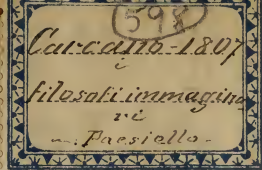 598
Carcano-1807
i
filosofi immagina
ri
Paesiello-